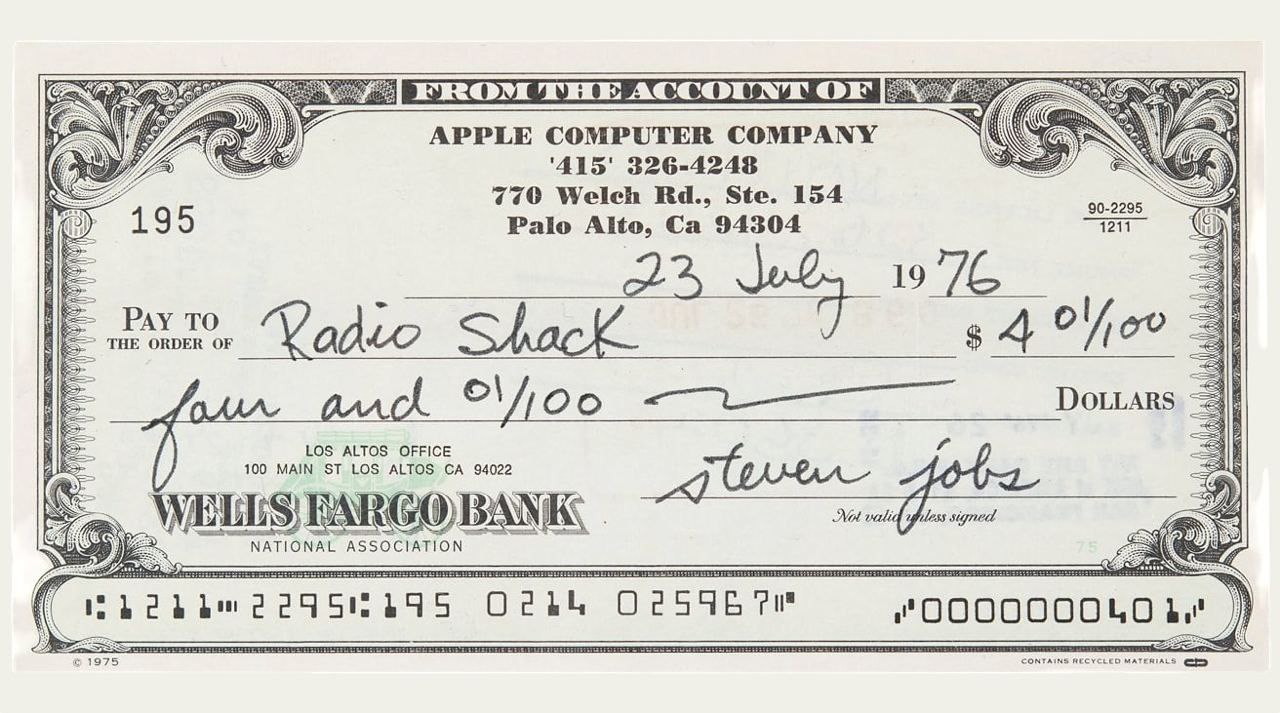 FROM THE ACCOUNT OF
APPLE COMPUTER COMPANY
'415' 326-4248
770 Welch Rd., Ste. 154
Palo Alto, Ca 94304
195
90-2295
1211
23 July 1976
PAY TO THE ORDER OF Radio Shack $ 4 01/100
four and 01/100 DOLLARS
LOS ALTOS OFFICE
100 MAIN ST LOS ALTOS CA 94022
WELLS FARGO BANK
NATIONAL ASSOCIATION
steven jobs
Not valid unless signed
75
⑆1211⑉2295⑆195 0214 025967⑈ ⑇0000000401⑇
© 1975
CONTAINS RECYCLED MATERIALS